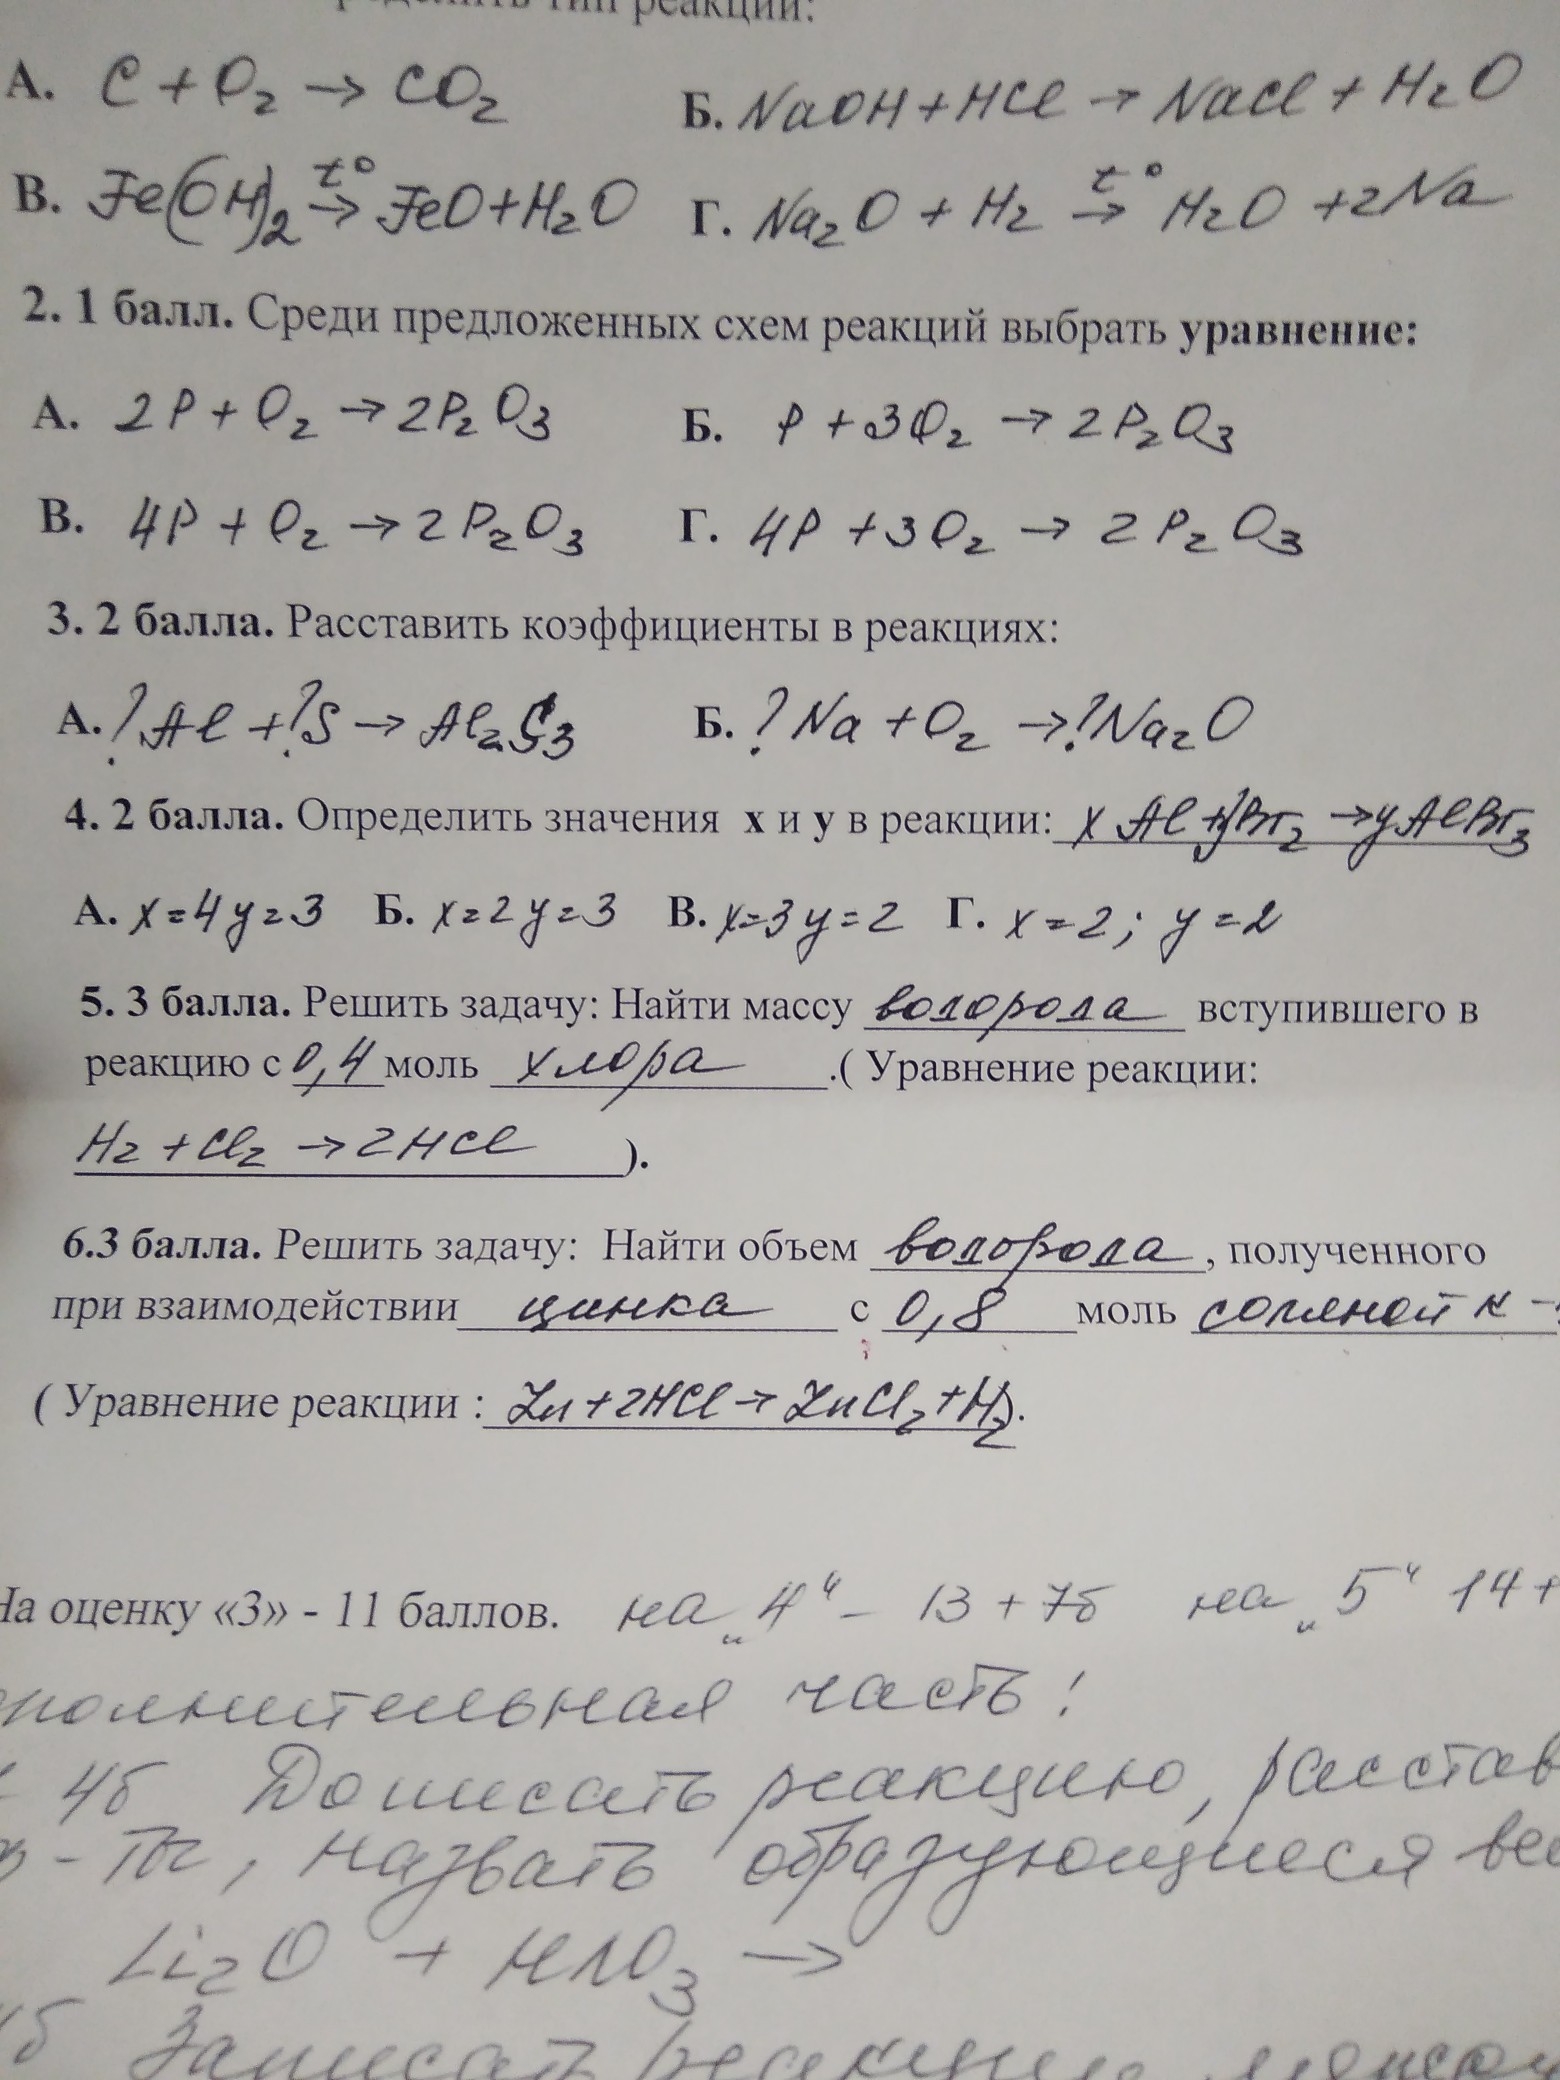 тип реакции:
А. C + O₂ → CO₂ Б. NaOH + HCl → NaCl + H₂O
В. Fe(OH)₂ t° → FeO + H₂O Г. Na₂O + H₂ t° → H₂O + 2Na
2. 1 балл. Среди предложенных схем реакций выбрать уравнение:
А. 2P + O₂ → 2P₂O₃ Б. P + 3O₂ → 2P₂O₃
В. 4P + O₂ → 2P₂O₃ Г. 4P + 3O₂ → 2P₂O₃
3. 2 балла. Расставить коэффициенты в реакциях:
А. ? Al + ? S → Al₂S₃ Б. ? Na + O₂ → ? Na₂O
4. 2 балла. Определить значения х и у в реакции: x Al + Br₂ → y AlBr₃
А. x = 4 y = 3 Б. x = 2 y = 3 В. x = 3 y = 2 Г. x = 2; y = 2
5. 3 балла. Решить задачу: Найти массу водорода вступившего в
реакцию с 0,4 моль хлора .( Уравнение реакции:
H₂ + Cl₂ → 2HCl ).
6.3 балла. Решить задачу: Найти объем водорода , полученного
при взаимодействии цинка с 0,8 моль соляной к -
( Уравнение реакции : Zn + 2HCl → ZnCl₂ + H₂).
На оценку «3» - 11 баллов. на „4“ – 13 + 7б на „5“ 14 +
полнительная часть!
4б Дописать реакцию, расстав
- ты, назвать образующиеся ве
Li₂O + HNO₃ →
Записать реакции